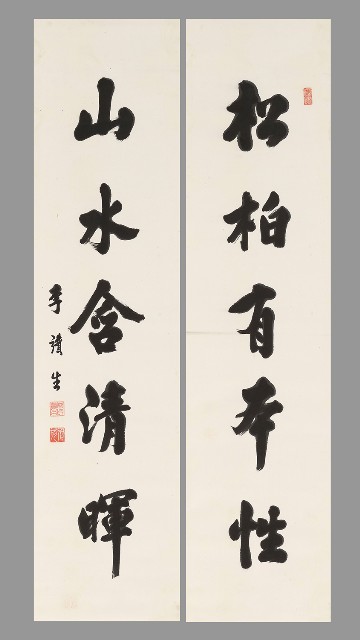 松柏有本性
山水含清暉
李讀生